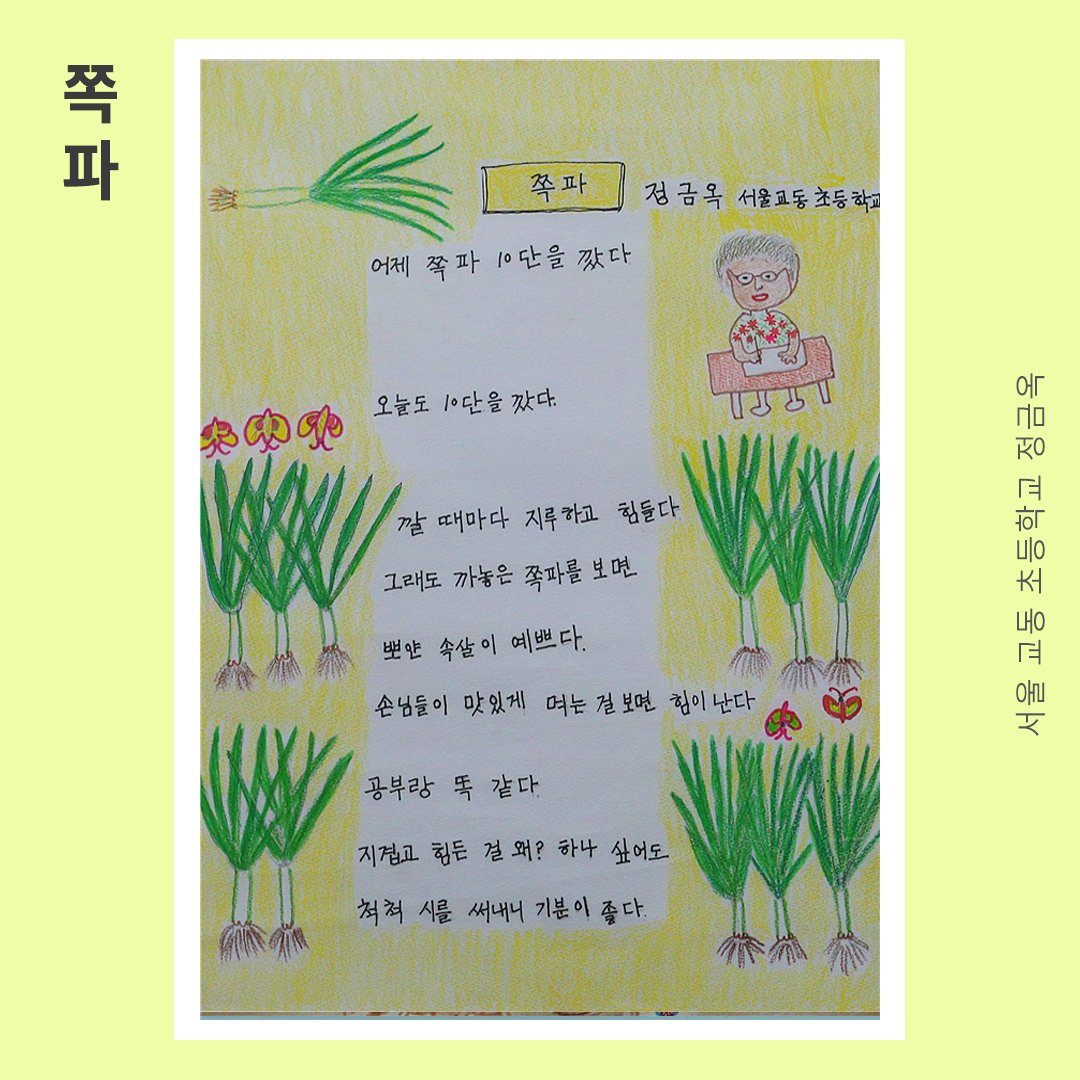 쪽파
쪽파 정금옥 서울교동초등학교
어제 쪽파 10단을 깠다
오늘도 10단을 깠다.
깔 때마다 지루하고 힘들다.
그래도 까놓은 쪽파를 보면
뽀얀 속살이 예쁘다.
손님들이 맛있게 먹는 걸 보면 힘이 난다
공부랑 똑 같다.
지겹고 힘든 걸 왜? 하나 싶어도
척척 시를 써내니 기분이 좋다.
서울 교동 초등학교 정금옥